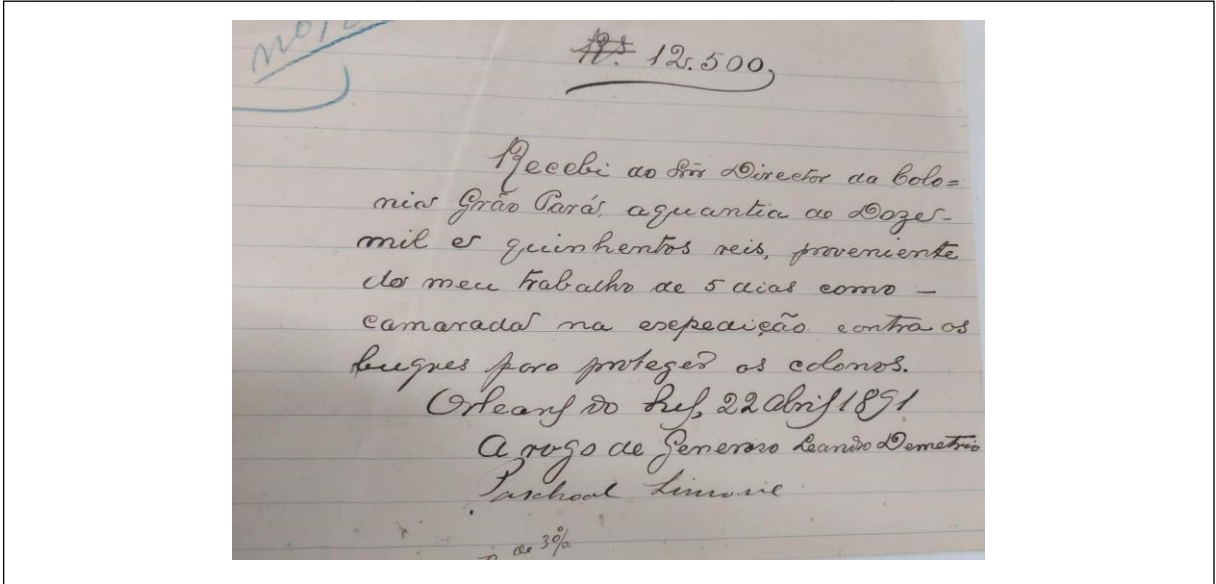 Rs. 12.500,
Recebi do Snr Director da Colo=
nia Grão Pará, a quantia de Doze-
mil e quinhentos reis, proveniente
do meu trabalho de 5 dias como —
camarada na expedição contra os
bugres para proteger os colonos.
Orleans do Sul, 22 abril 1891
A rogo de Generoso Leandro Demetrio
Paschoal Simone
de 3%